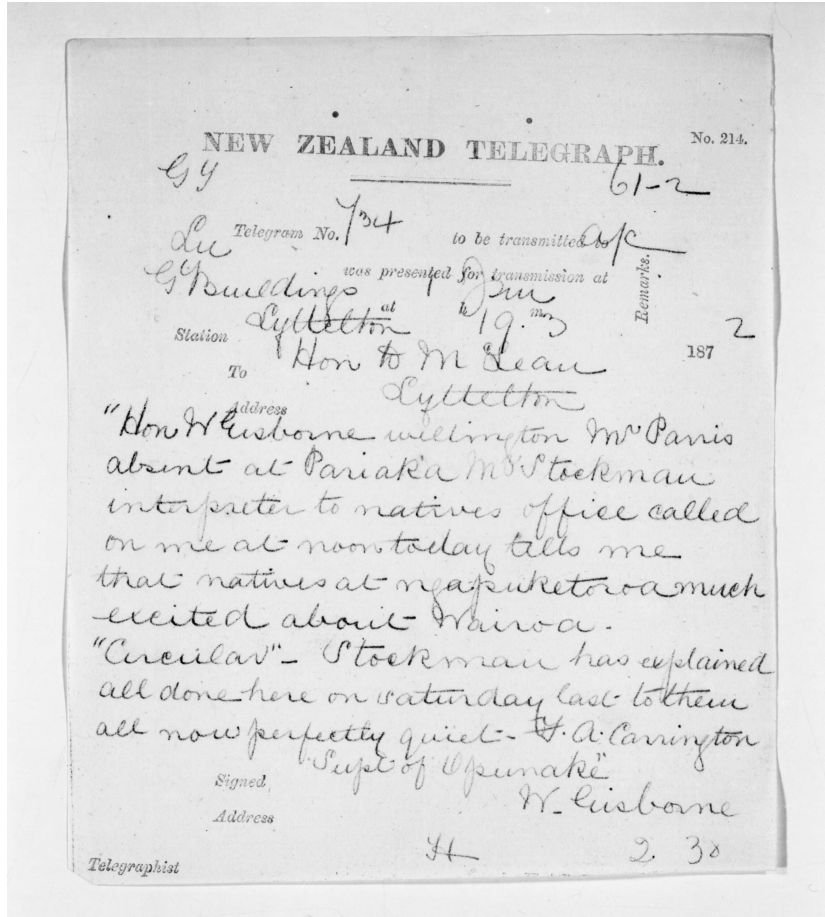 NEW ZEALAND TELEGRAPH.
No. 214.
Gy
61-2
Telegram No. 734 to be transmitted to a/c
Remarks.
Gt Buildings was presented for transmission at
Station Lyttelton at h 19. m 3 1872
To Hon D McLean
Address Lyttelton
"Hon W Gisborne wellington Mr Parris
absent at Pariaka Mr Stockman
interpreter to natives office called
on me at noon today tells me
that natives at ngapuketoroa much
excited about Wairoa.
"Circular" - Stockman has explained
all done here on saturday last to them
all now perfectly quiet - F. A. Carrington
Supt of Opunake"
Signed, W. Gisborne
Address
2. 30
Telegraphist